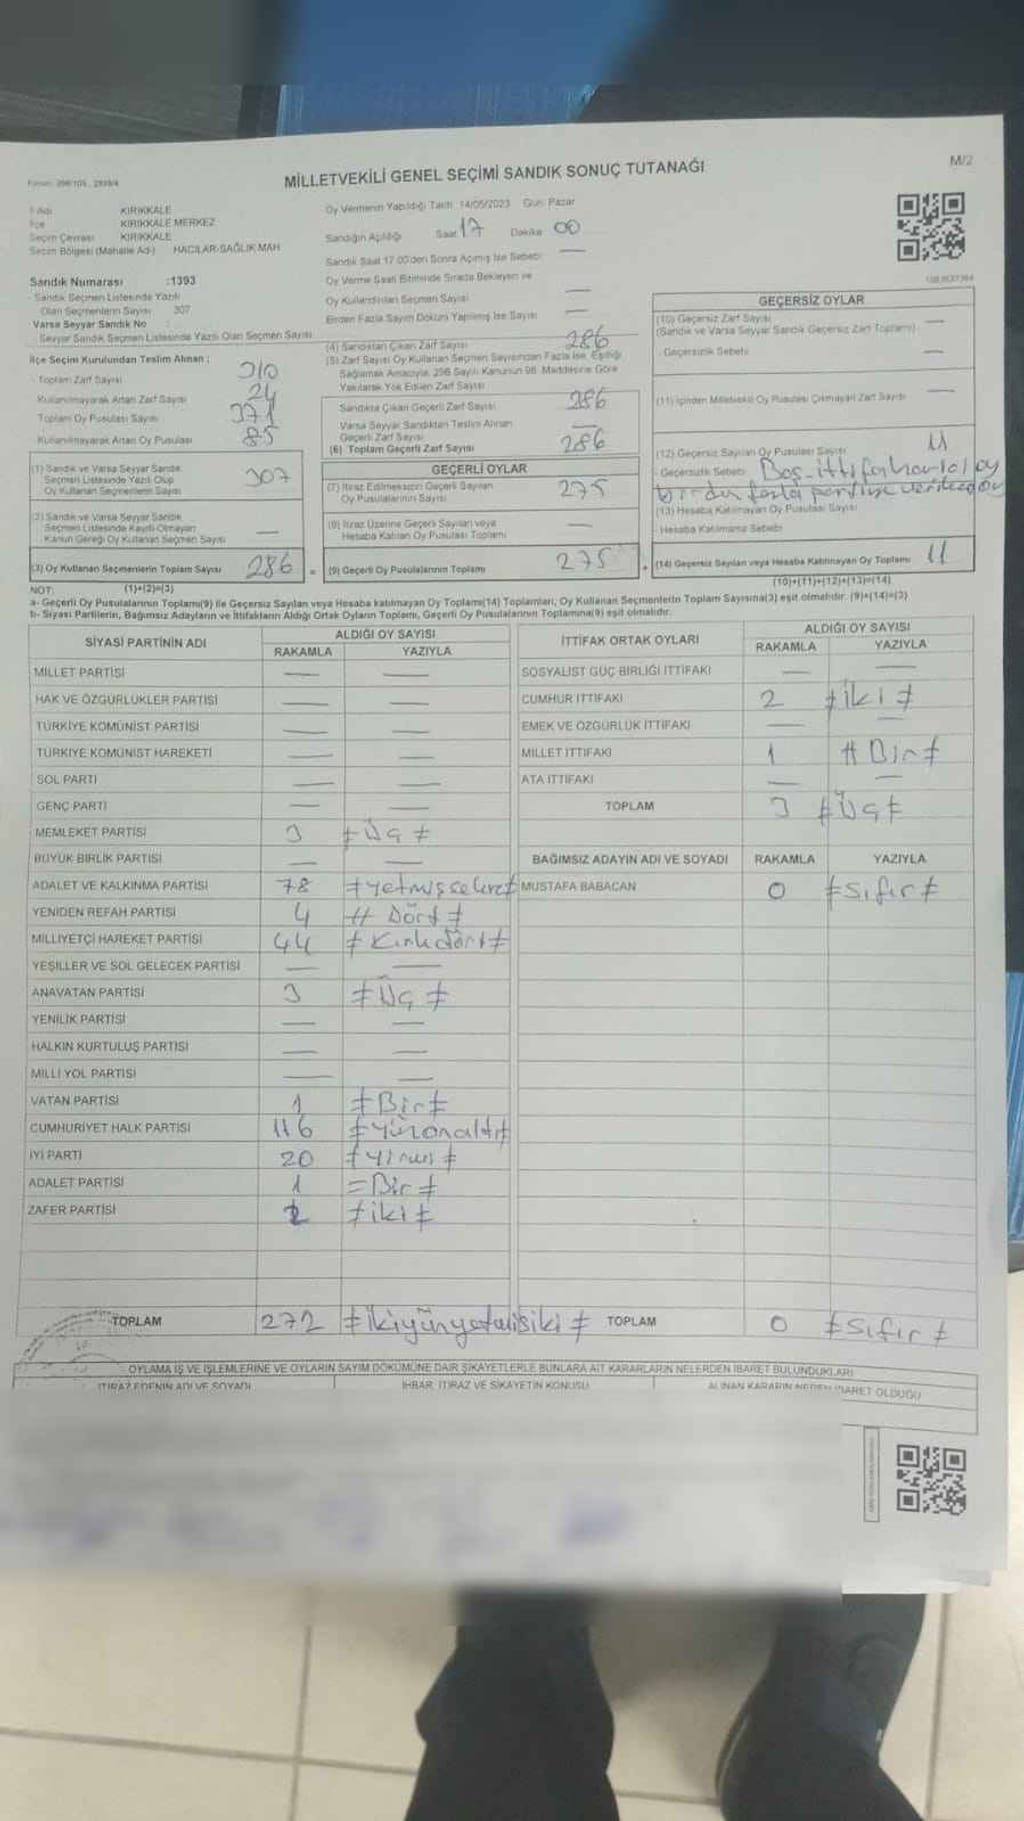 MİLLETVEKİLİ GENEL SEÇİMİ SANDIK SONUÇ TUTANAĞI
M/2
KIRIKKALE
İlçe KIRIKKALE MERKEZ
Seçim Çevresi KIRIKKALE
Seçim Bölgesi (Mahalle Adı) HACILAR-SAĞLIK MAH
Sandık Numarası :1393
Sandık Seçmen Listesinde Yazılı
Olan Seçmenlerin Sayısı 307
Varsa Seyyar Sandık No
Seyyar Sandık Seçmen Listesinde Yazılı Olan Seçmen Sayısı
İlçe Seçim Kurulundan Teslim Alınan :
Toplam Zarf Sayısı 310
Kullanılmayarak Artan Zarf Sayısı 24
Toplam Oy Pusulası Sayısı 371
Kullanılmayarak Artan Oy Pusulası 85
(1) Sandık ve Varsa Seyyar Sandık
Seçmen Listesinde Yazılı Olup
Oy Kullanan Seçmenlerin Sayısı 307
(2) Sandık ve Varsa Seyyar Sandık
Seçmen Listesinde Kayıtlı Olmayan
Kanun Gereği Oy Kullanan Seçmen Sayısı —
(3) Oy Kullanan Seçmenlerin Toplam Sayısı 286
(1)+(2)=(3)
Oy Vermenin Yapıldığı Tarih :14/05/2023 Gün: Pazar
Sandığın Açıldığı Saat 17 Dakika 00
Sandık Saat 17:00'den Sonra Açılmış İse Sebebi —
Oy Verme Saati Bitiminde Sırada Bekleyen ve
Oy Kullandırılan Seçmen Sayısı —
Birden Fazla Sayım Döküm Yapılmış İse Sayısı —
(4) Sandıktan Çıkan Zarf Sayısı 286
(5) Zarf Sayısı Oy Kullanan Seçmen Sayısından Fazla İse, Eşitliği
Sağlamak Amacıyla, 298 Sayılı Kanunun 98. Maddesine Göre
Yakılarak Yok Edilen Zarf Sayısı
Sandıkta Çıkan Geçerli Zarf Sayısı 286
Varsa Seyyar Sandıktan Teslim Alınan
Geçerli Zarf Sayısı —
(6) Toplam Geçerli Zarf Sayısı 286
GEÇERLİ OYLAR
(7) İtiraz Edilmeksizin Geçerli Sayılan
Oy Pusulalarının Sayısı 275
(8) İtiraz Üzerine Geçerli Sayılan veya
Hesaba Katılan Oy Pusulası Toplamı —
(9) Geçerli Oy Pusulalarının Toplamı 275
GEÇERSİZ OYLAR
(10) Geçersiz Zarf Sayısı
(Sandık ve Varsa Seyyar Sandık Geçersiz Zarf Toplamı) —
Geçersizlik Sebebi —
(11) İçinden Milletvekili Oy Pusulası Çıkmayan Zarf Sayısı —
(12) Geçersiz Sayılan Oy Pusulası Sayısı 11
Geçersizlik Sebebi Boş-ittifak harici oy
birden fazla partiye verilen oy
(13) Hesaba Katılmayan Oy Pusulası Sayısı
Hesaba Katılmama Sebebi
(14) Geçersiz Sayılan veya Hesaba Katılmayan Oy Toplamı 11
(10)+(11)+(12)+(13)=(14)
NOT:
a- Geçerli Oy Pusulalarının Toplamı(9) ile Geçersiz Sayılan veya Hesaba katılmayan Oy Toplamı(14) Toplamları, Oy Kullanan Seçmenlerin Toplam Sayısına(3) eşit olmalıdır. (9)+(14)=(3)
b- Siyasi Partilerin, Bağımsız Adayların ve İttifakların Aldığı Ortak Oyların Toplamı, Geçerli Oy Pusulalarının Toplamına(9) eşit olmalıdır.
SİYASİ PARTİNİN ADI ALDIĞI OY SAYISI
RAKAMLA YAZIYLA
MİLLET PARTİSİ — —
HAK VE ÖZGÜRLÜKLER PARTİSİ — —
TÜRKİYE KOMÜNİST PARTİSİ — —
TÜRKİYE KOMÜNİST HAREKETİ — —
SOL PARTİ — —
GENÇ PARTİ — —
MEMLEKET PARTİSİ 3 ≠Üç≠
BÜYÜK BİRLİK PARTİSİ — —
ADALET VE KALKINMA PARTİSİ 78 ≠yetmişsekiz≠
YENİDEN REFAH PARTİSİ 4 #Dört≠
MİLLİYETÇİ HAREKET PARTİSİ 44 ≠Kırkdört≠
YEŞİLLER VE SOL GELECEK PARTİSİ — —
ANAVATAN PARTİSİ 3 ≠Üç≠
YENİLİK PARTİSİ — —
HALKIN KURTULUŞ PARTİSİ — —
MİLLİ YOL PARTİSİ — —
VATAN PARTİSİ 1 ≠Bir≠
CUMHURİYET HALK PARTİSİ 116 ≠yüzonaltı≠
İYİ PARTİ 20 ≠yirmi≠
ADALET PARTİSİ 1 =Bir≠
ZAFER PARTİSİ 2 ≠iki≠
TOPLAM 272 ≠ikiyüzyetmişiki≠
İTTİFAK ORTAK OYLARI ALDIĞI OY SAYISI
RAKAMLA YAZIYLA
SOSYALİST GÜÇ BİRLİĞİ İTTİFAKI — —
CUMHUR İTTİFAKI 2 ≠iki≠
EMEK VE ÖZGÜRLÜK İTTİFAKI — —
MİLLET İTTİFAKI 1 #Bir≠
ATA İTTİFAKI — —
TOPLAM 3 ≠Üç≠
BAĞIMSIZ ADAYIN ADI VE SOYADI RAKAMLA YAZIYLA
MUSTAFA BABACAN 0 ≠Sıfır≠
TOPLAM 0 ≠Sıfır≠
OYLAMA İŞ VE İŞLEMLERİNE VE OYLARIN SAYIM DÖKÜMÜNE DAİR ŞİKAYETLERLE BUNLARA AİT KARARLARIN NELERDEN İBARET BULUNDUKLARI
İTİRAZ EDENİN ADI VE SOYADI İHBAR, İTİRAZ VE ŞİKAYETİN KONUSU ALINAN KARARIN NEDEN İBARET OLDUĞU